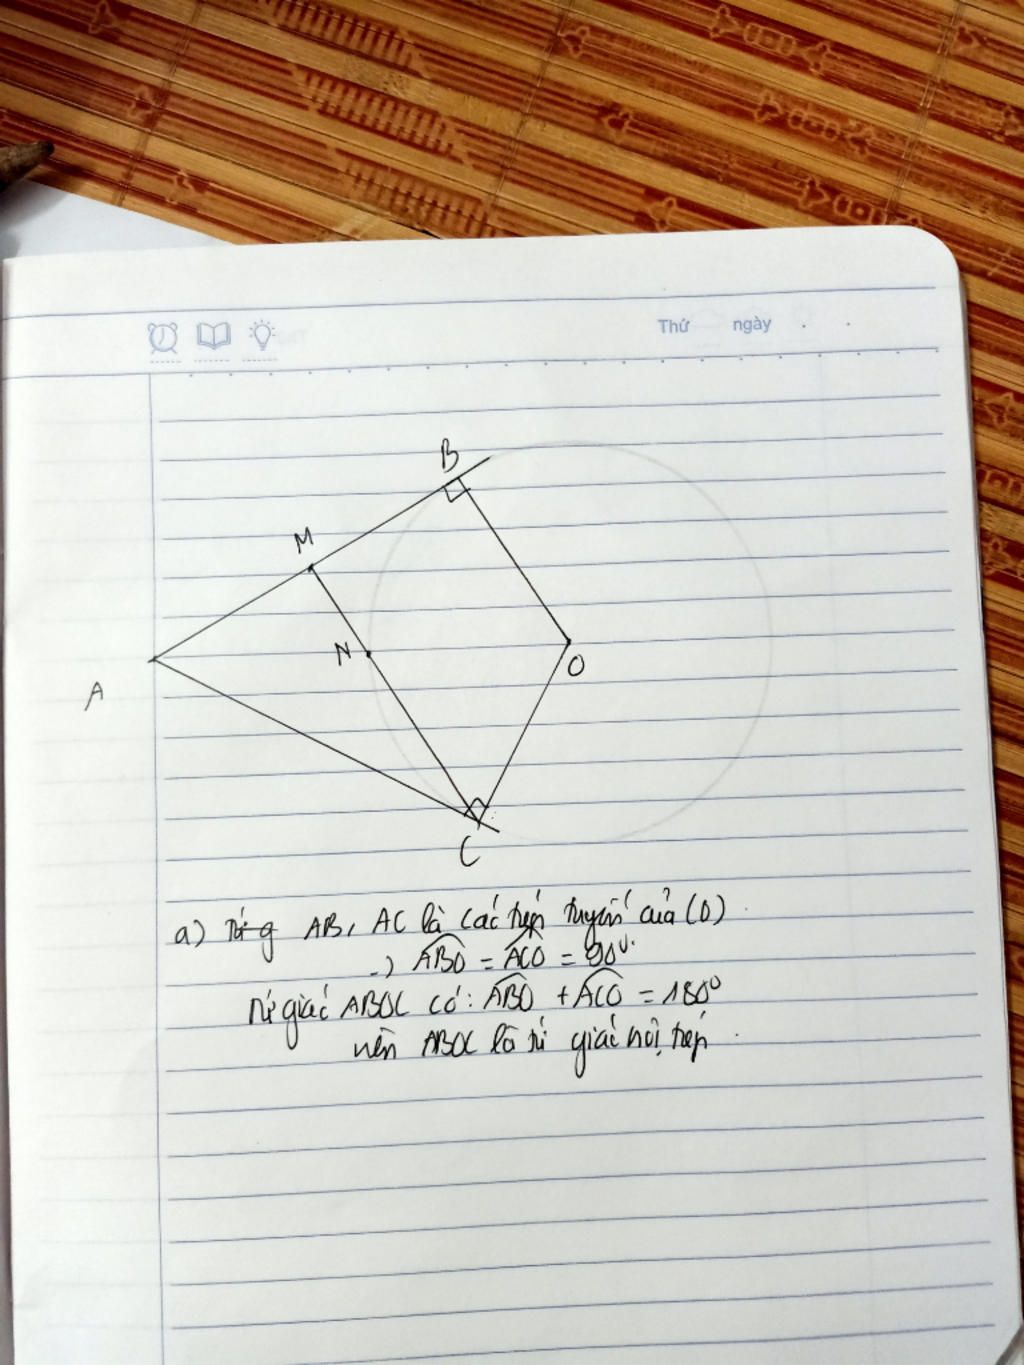 Thứ ngày
B
M
N
O
A
C
a) Từ g AB, AC là các tiếp tuyến của (O).
-) ABO = ACO = 90⁰.
Tứ giác ABOC có: ABO + ACO = 180⁰
nên ABOC là tứ giác nội tiếp.